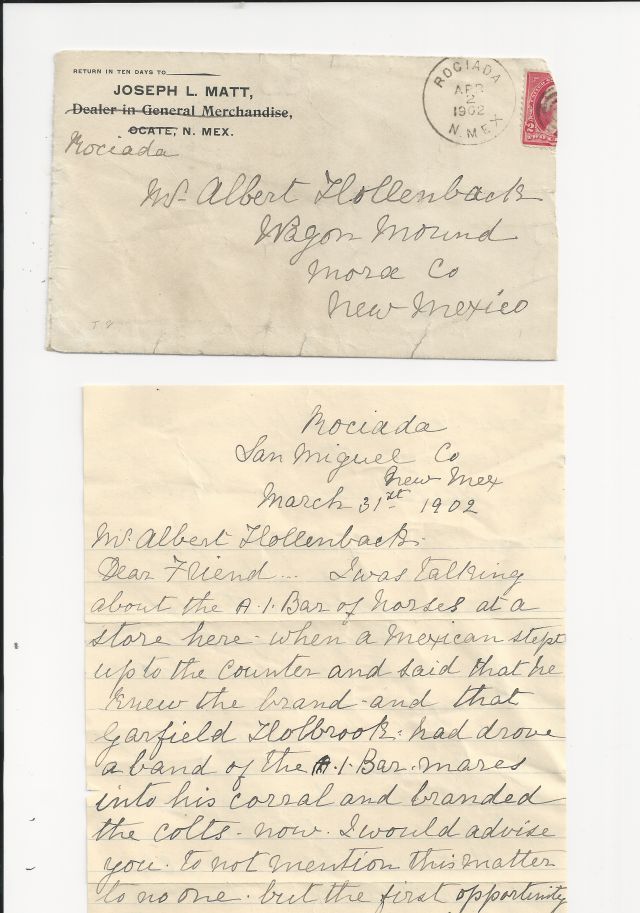 RETURN IN TEN DAYS TO
JOSEPH L. MATT,
Dealer in General Merchandise,
OCATE, N. MEX.
Rociada
ROCIADA
APR
2
1902
N. MEX
Mr Albert Hollenback
Wagon Mound
Mora Co
New Mexico
Rociada
San Miguel Co
New Mex
March 31st 1902
Mr. Albert Hollenback.
Dear Friend... I was talking
about the A.1. Bar of horses at a
store here - when a Mexican stept
up to the counter and said that he
knew the brand - and that
Garfield Holbrook. had drove
a band of the A.1. Bar. mares
into his corral and branded
the colts. now. I would advise
you. to not mention this matter
to no one. but the first opportunity